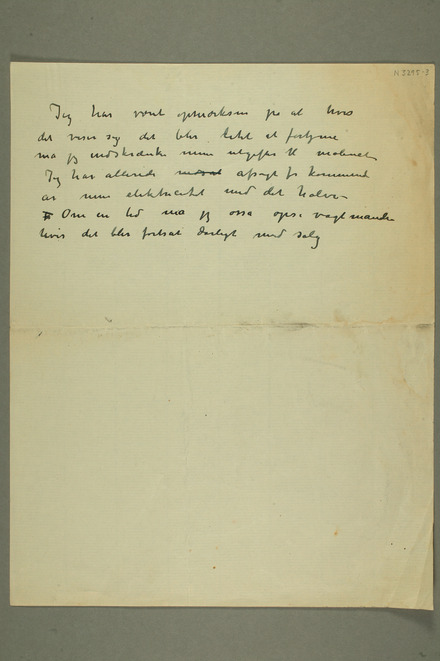 N 3295-3
Jeg har vært opmerksom på at hvis
det viser sig det blir lite at fortjene
må jeg indskrænke mine utgifter til
Jeg har allerede afsagt for kommende
år min elektricitet med det halve
Om en tid må jeg også opsi vagtmanden
hvis det blir fortsat dårligt med salg